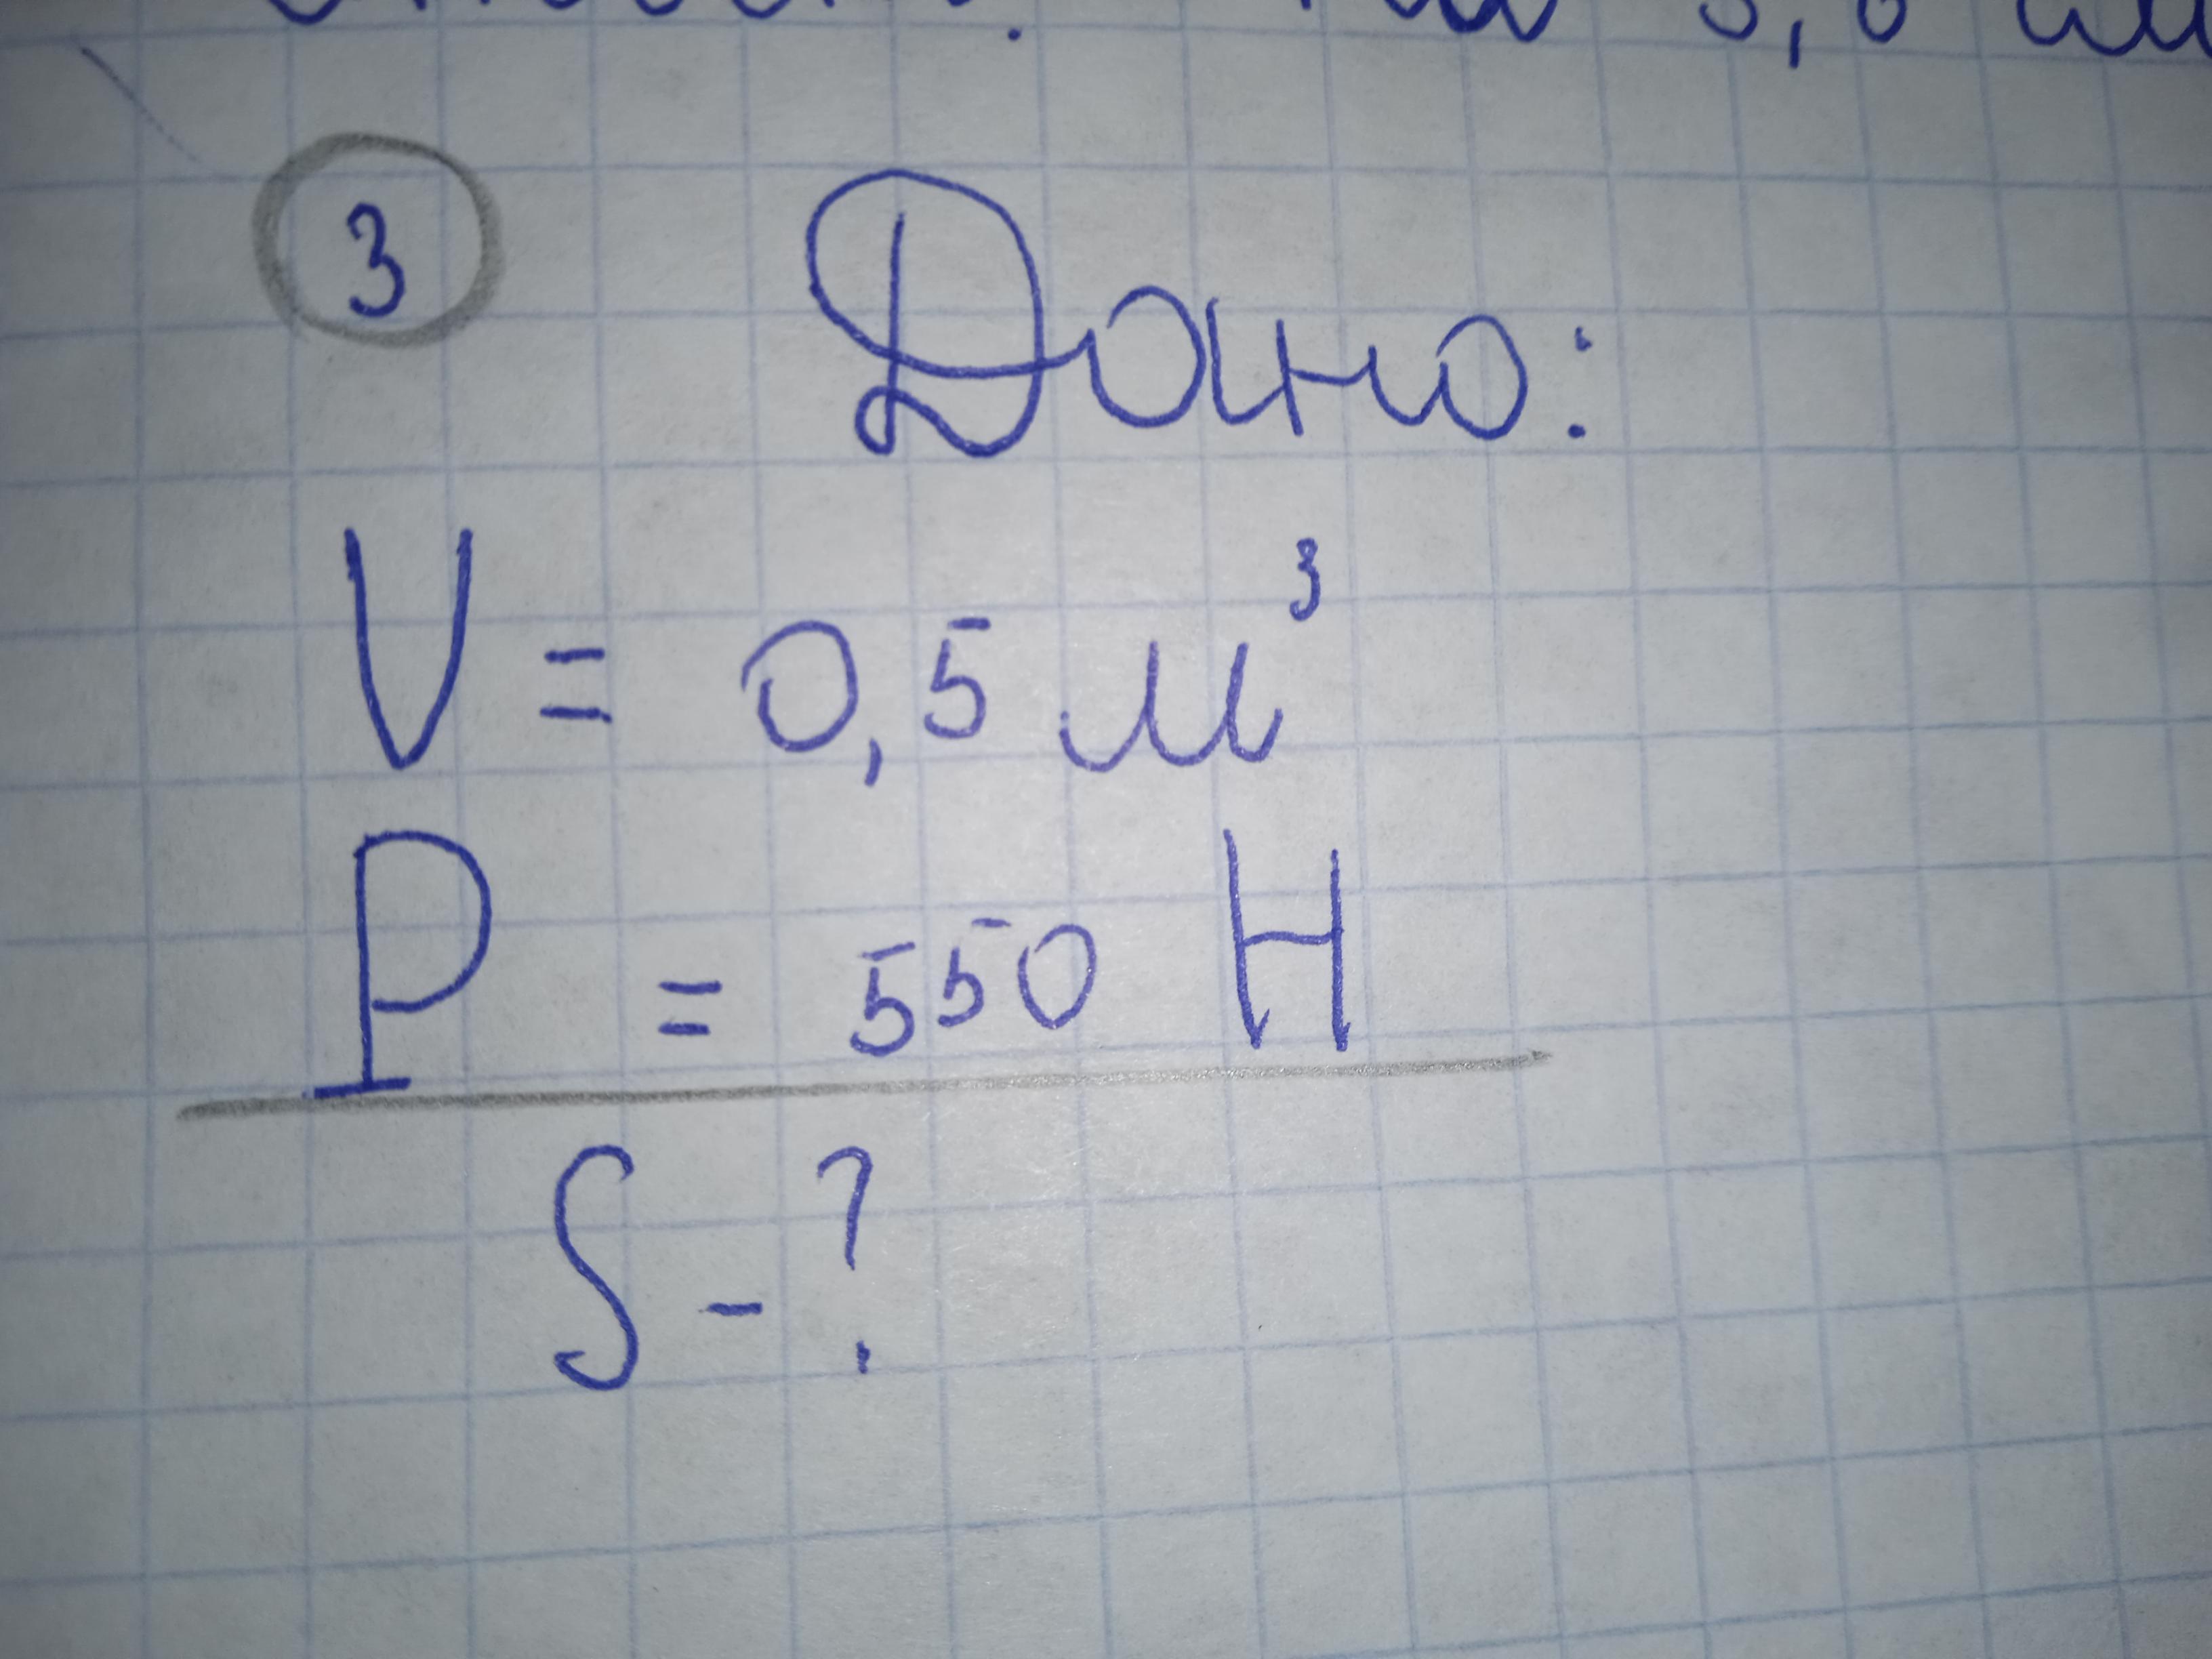 3 Дано:
V = 0,5 м³
P = 550 H
S - ?